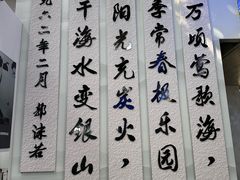 万顷莺歌海，
季常春极乐园
阳光充炭火，
千海水变银山
九六二年二月 郭沫若